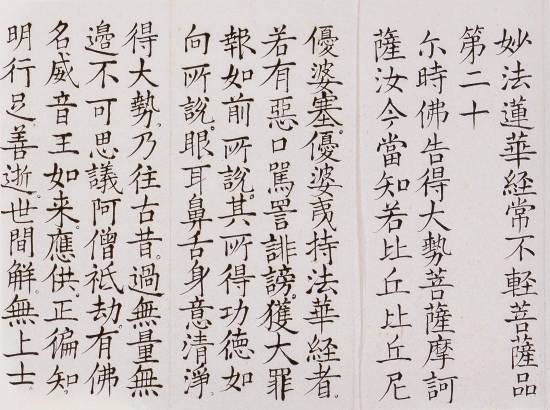 妙法蓮華経常不軽菩薩品
第二十
尓時佛告得大勢菩薩摩訶
薩汝今當知若比丘比丘尼
優婆塞。優婆夷持法華経者。
若有惡口罵詈誹謗。獲大罪
報如前所說。其所得功徳如
向所說。眼耳鼻舌身意清淨。
得大勢。乃往古昔。過無量無
邊不可思議阿僧祇劫。有佛
名威音王如来。應供。正徧知。
明行足。善逝。世間解。無上士。